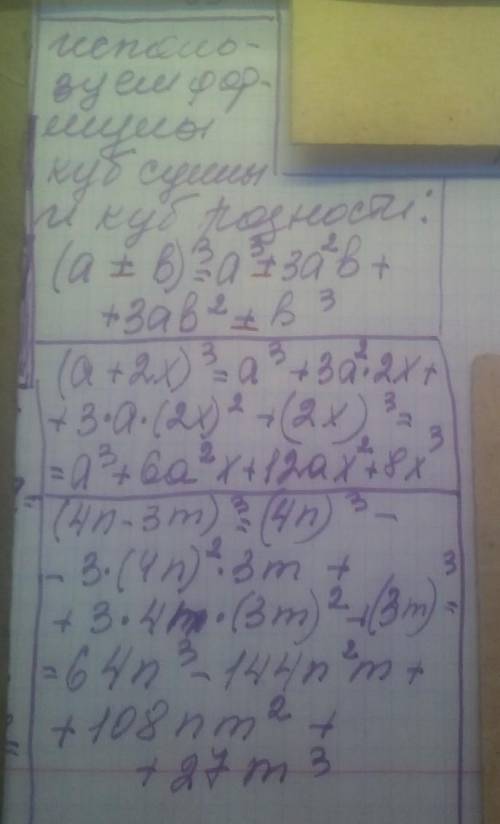 исполь-
зуем фор-
мулы
куб суммы
и куб разности:
(a ± b)³=a³±3a²b+
+3ab²±b³
(a+2x)³=a³+3a²·2x+
+3·a·(2x)²+(2x)³=
=a³+6a²x+12ax²+8x³
(4n-3m)³=(4n)³-
-3·(4n)²·3m+
+3·4n·(3m)²+(3m)³=
=64n³-144n²m+
+108nm²+
+27m³